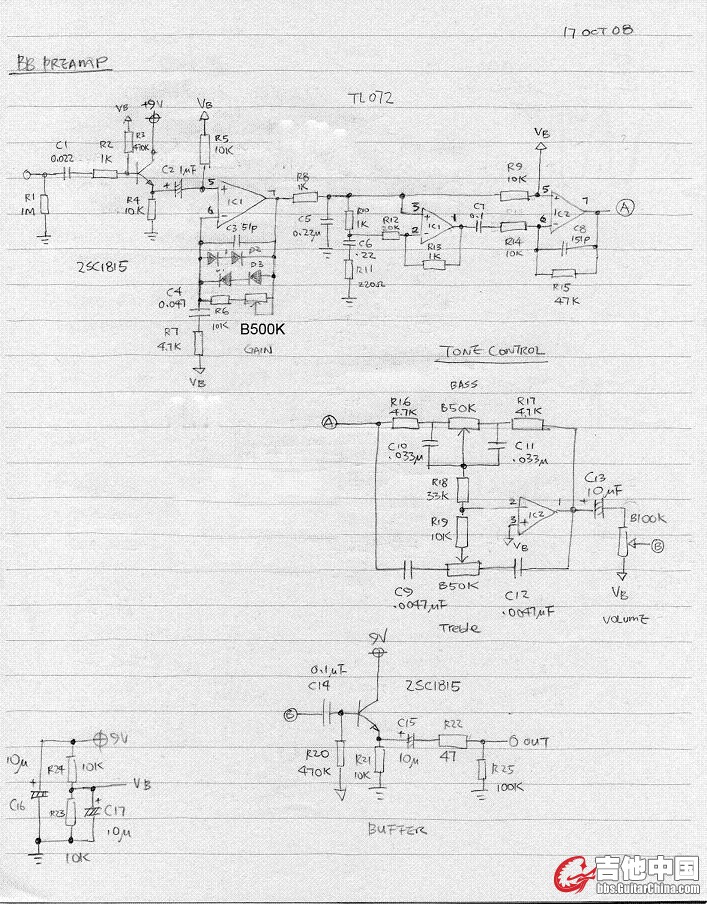 17 OCT 08
BB PREAMP
TL072
VB +9V VB
R3 470K
R5 10K
C1 0.022
R2 1K
C2 1µF
R1 1M
R4 10K
2SC1815
5 + IC1 7
6 -
C3 51p
D2
D3
C4 0.047
R6 10K
B500K
GAIN
R7 4.7K
VB
R8 1K
C5 0.22µ
R10 1K
C6 .22
R11 220Ω
R12
3 + IC1 1
2 -
R13 1K
C7 0.1
R14 10K
VB
R9 10K
5 + IC2 7
6 -
A
C8 151p
R15 47K
TONE CONTROL
BASS
A
R16 4.7K
B50K
R17 4.7K
C10 .033µ
C11 .033µ
R18 33K
R19 10K
2 - IC2 1
3 +
VB
C13 10µF
B100K
B
VB
VOLUME
B50K
C9 .0047µF
C12 .0047µF
Treble
9V
0.1µF C14
2SC1815
B
C15 10µ
R22 47
OUT
R20 470K
R21 10K
R25 100K
BUFFER
9V
10µ
C16
R24 10K
VB
R23 10K
C17 10µ
吉他中国
bbs.GuitarChina.com